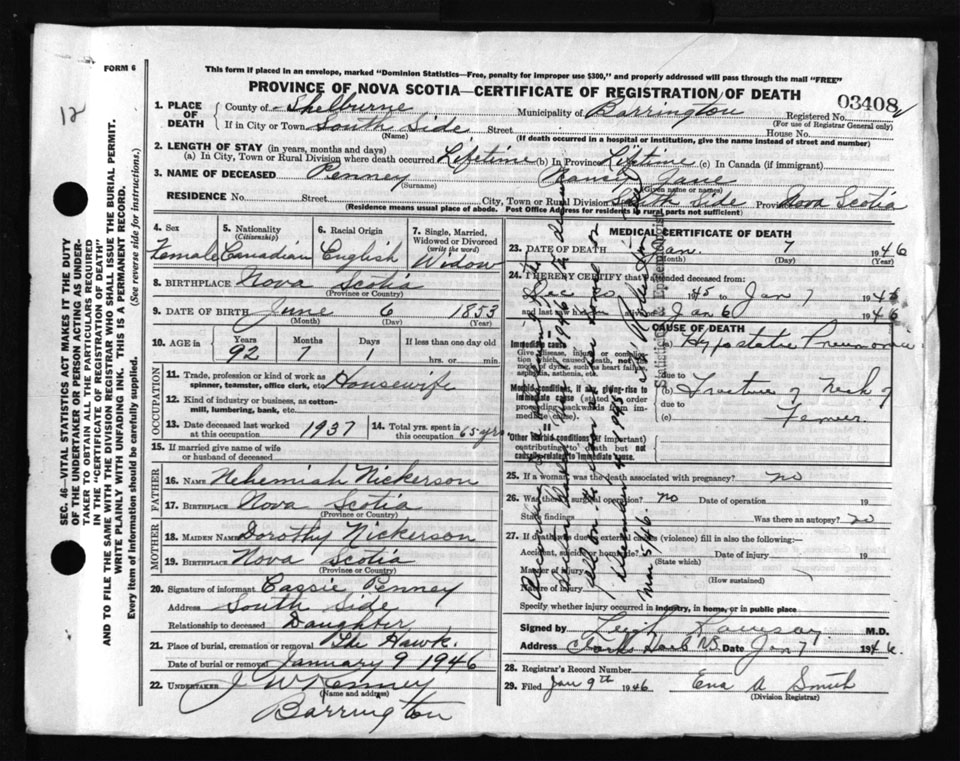 FORM 6
12
This form if placed in an envelope, marked "Dominion Statistics—Free, penalty for improper use $300," and properly addressed will pass through the mail "FREE"
PROVINCE OF NOVA SCOTIA—CERTIFICATE OF REGISTRATION OF DEATH
03408
SEC. 46—VITAL STATISTICS ACT MAKES IT THE DUTY
OF THE UNDERTAKER OR PERSON ACTING AS UNDER-
TAKER TO OBTAIN ALL THE PARTICULARS REQUIRED
IN THE "CERTIFICATE OF REGISTRATION OF DEATH"
AND TO FILE THE SAME WITH THE DIVISION REGISTRAR WHO SHALL ISSUE THE BURIAL PERMIT.
WRITE PLAINLY WITH UNFADING INK. THIS IS A PERMANENT RECORD.
Every item of information should be carefully supplied. (See reverse side for instructions.)
1. PLACE OF DEATH County of Shelburne Municipality of Barrington Registered No.
(For use of Registrar General only)
If in City or Town South Side Street House No.
(Name) (If death occurred in a hospital or institution, give the name instead of street and number)
2. LENGTH OF STAY (in years, months and days)
(a) In City, Town or Rural Division where death occurred Lifetime (b) In Province Lifetime (c) In Canada (if immigrant)
3. NAME OF DECEASED Penney Jane
(Surname) (Given name or names)
RESIDENCE No. Street City, Town or Rural Division South Side Province Nova Scotia
(Residence means usual place of abode. Post Office Address for residents in rural parts not sufficient)
4. Sex 5. Nationality (Citizenship) 6. Racial Origin 7. Single, Married, Widowed or Divorced (write the word)
Female Canadian English Widow
8. BIRTHPLACE Nova Scotia
(Province or Country)
9. DATE OF BIRTH June 6 1853
(Month) (Day) (Year)
10. AGE in Years Months Days If less than one day
92 7 1 hrs. or min.
OCCUPATION
11. Trade, profession or kind of work as spinner, teamster, office clerk, etc. Housewife
12. Kind of industry or business, as cotton-mill, lumbering, bank, etc.
13. Date deceased last worked at this occupation 1937 14. Total yrs. spent in this occupation 65 yrs
15. If married give name of wife or husband of deceased
FATHER
16. NAME Nehemiah Nickerson
17. BIRTHPLACE Nova Scotia
(Province or Country)
MOTHER
18. MAIDEN NAME Dorothy Nickerson
19. BIRTHPLACE Nova Scotia
(Province or Country)
20. Signature of informant Cassie Penney
Address South Side
Relationship to deceased Daughter
21. Place of burial, cremation or removal The Hawk.
Date of burial or removal January 9 1946
22. UNDERTAKER J W Kenney
(Name and address)
Barrington
MEDICAL CERTIFICATE OF DEATH
23. DATE OF DEATH Jan. 7 1946
(Month) (Day) (Year)
24. I HEREBY CERTIFY that I attended deceased from:
Dec 1945 to Jan 7 1946
and last saw alive on Jan 6 1946
CAUSE OF DEATH
Immediate cause
Give disease, injury or complication which caused death, not the mode of dying, such as heart failure, asphyxia, asthenia, etc.
(a) Hypostatic Pneumonia
due to
Morbid conditions, if any, giving rise to immediate cause (stated in order proceeding backwards from immediate cause).
(b) Fracture of Neck of
due to
(c) Femur.
Other morbid conditions (if important) contributing to death but not causally related to immediate cause.
25. If a woman was the death associated with pregnancy? no
26. Was there a surgical operation? no Date of operation 19
State findings Was there an autopsy? no
27. If death due to external causes (violence) fill in also the following:—
Accident, suicide or homicide? Date of injury 19
(State which)
Manner of injury
(How sustained)
Nature of injury
Specify whether injury occurred in industry, in home, or in public place
Signed by M.D.
Address Clarks Harb N.S. Date Jan 7 1946.
28. Registrar's Record Number
29. Filed Jan 9th 1946 Ena A Smith
(Division Registrar)